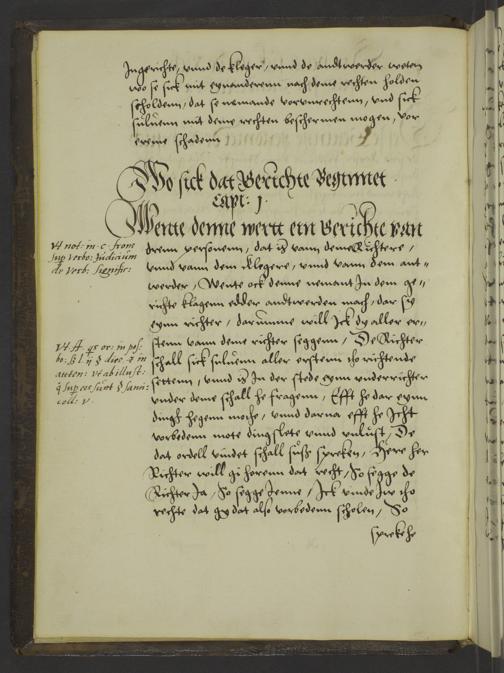 Ingerichte, vnnd de kleger, vnnd de andtwerder weten
wo se sick mit eynanderenn nach deme rechten holden
scholdenn, dat se nemande vorvnrechtenn, vnd sick
suluenn mit deme rechten beschermen mogen, vor
ereme schadenn
Wo sick dat Gerichte Beginnet
Capi: 1.
Wente denne wert ein Gerichte van
drenn personenn, dat is vann deme Richtere,
vnnd vann dem klegere, vnnd vann dem ant=
werder, Wente ock denne nemant In dem ge=
richte klagenn edder andtwerden mach, dar sy
eynn richter, darumme will Ick dy aller er=
stenn vann deme richter seggenn, De Richter
schall sick suluenn aller erstenn tho richtende
settenn, vnnd is In der stede eynn vnderrichter
vnder deme schall he fragenn, Efft he dar eynn
dingk hegenn mothe, vnnd darna efft he Icht
vorbedenn mote dingslete vnnd vnlust, De
dat ordell vindet schall suss spreken, Here her
Richter will gi horenn dat recht, So segge de
Richter Ja, So segge Jenne, Ick vinde Iw tho
rechte dat gy dat also vorbedenn scholen, So
spreke he
Vt not: in c. forus
sup verbo: Iudicium
de verb: signifi: